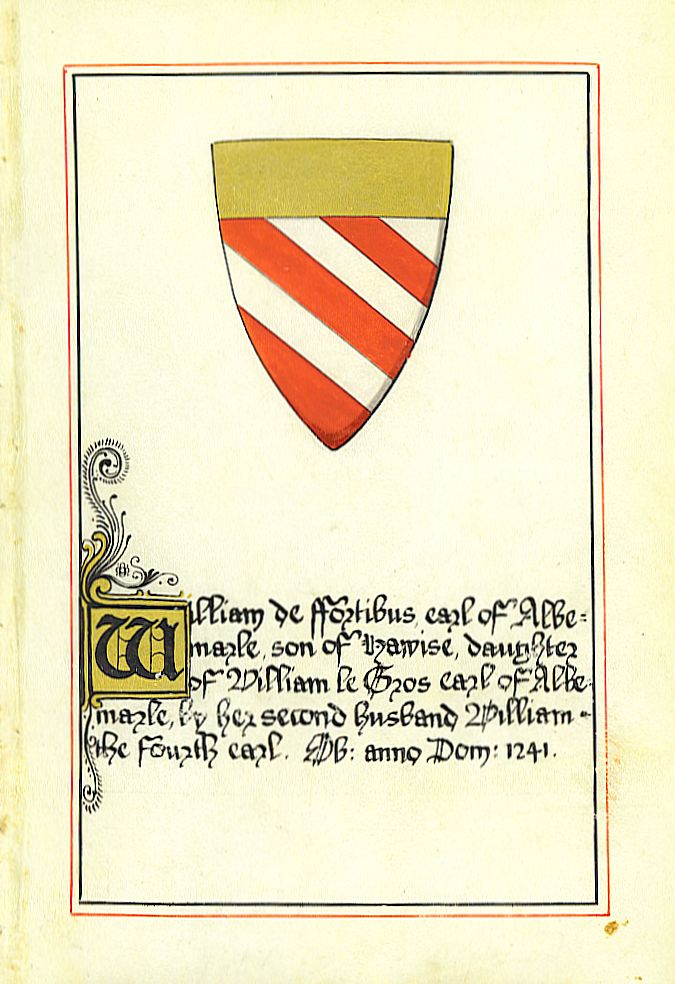 William de ffortibus, earl of Albe=
marle, son of Hawise, daughter
of William le Gros earl of Albe-
marle, by her second husband William
the fourth earl. Ob: anno Dom: 1241.